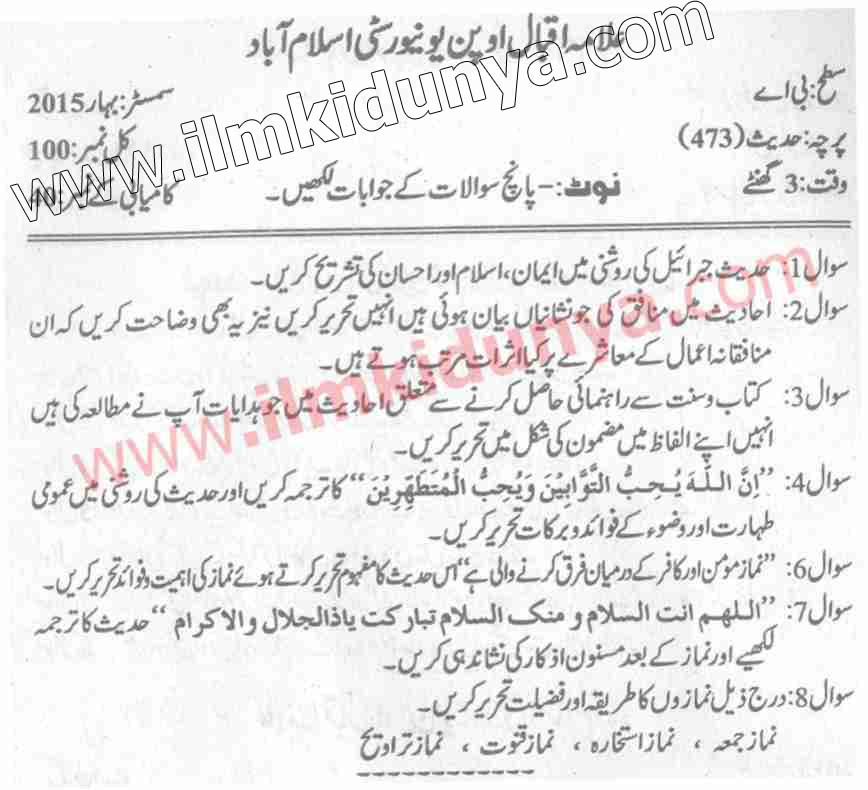 علامہ اقبال اوپن یونیورسٹی اسلام آباد
سطح: بی اے
سمسٹر: بہار 2015
پرچہ: حدیث (473)
کل نمبر: 100
وقت: 3 گھنٹے
نوٹ:- پانچ سوالات کے جوابات لکھیں۔
کامیابی کے نمبر: 40
www.ilmkidunya.com
سوال 1: حدیث جبرائیل کی روشنی میں ایمان، اسلام اور احسان کی تشریح کریں۔
سوال 2: احادیث میں منافق کی جو نشانیاں بیان ہوئی ہیں انہیں تحریر کریں نیز یہ بھی وضاحت کریں کہ ان
منافقانہ اعمال کے معاشرے پر کیا اثرات مرتب ہوتے ہیں۔
سوال 3: کتاب و سنت سے راہنمائی حاصل کرنے سے متعلق احادیث میں جو ہدایات آپ نے مطالعہ کی ہیں
انہیں اپنے الفاظ میں مضمون کی شکل میں تحریر کریں۔
www.ilmkidunya.com
سوال 4: ”اِنَّ اللّٰہَ یُحِبُّ التَّوَّابِیْنَ وَیُحِبُّ الْمُتَطَھِّرِیْنَ“ کا ترجمہ کریں اور حدیث کی روشنی میں عمومی
طہارت اور وضوء کے فوائد و برکات تحریر کریں۔
سوال 6: ”نماز مومن اور کافر کے درمیان فرق کرنے والی ہے“ اس حدیث کا مفہوم تحریر کرتے ہوئے نماز کی اہمیت و فوائد تحریر کریں۔
سوال 7: ”اللهم انت السلام و منك السلام تباركت ياذالجلال والاكرام“ حدیث کا ترجمہ
لکھیے اور نماز کے بعد مسنون اذکار کی نشاندہی کریں۔
سوال 8: درج ذیل نمازوں کا طریقہ اور فضیلت تحریر کریں۔
نماز جمعہ ، نماز استخارہ ، نماز قنوت ، نماز تراویح